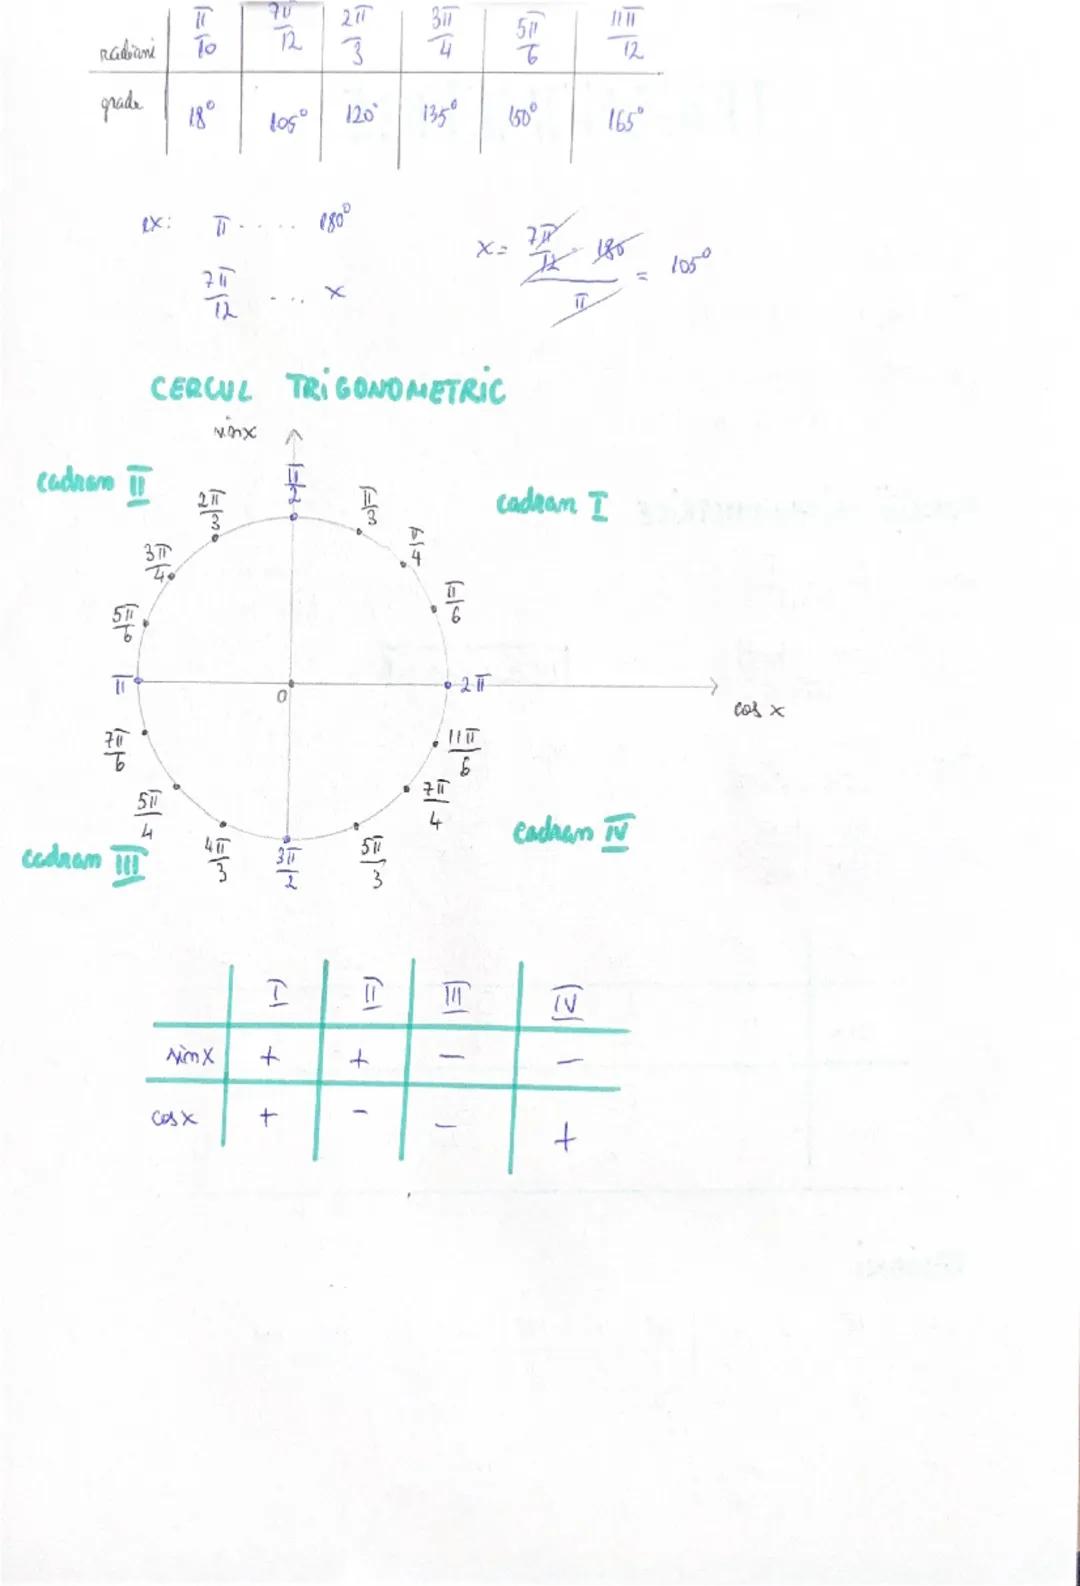 radiani π/10 7π/12 2π/3 3π/4 5π/6 11π/12
grade 18° 105° 120° 135° 150° 165°
ex: π ..... 180°
7π/12 ... x
x = 7π/12 · 180 / π = 105°
CERCUL TRIGONOMETRIC
sinx
cadran II
cadran I
π/2
2π/3
π/3
3π/4
π/4
5π/6
π/6
π
0
2π
cos x
7π/6
11π/6
5π/4
7π/4
4π/3
3π/2
5π/3
cadran III
cadran IV
I II III IV
sinx + + - -
cosx + - - +